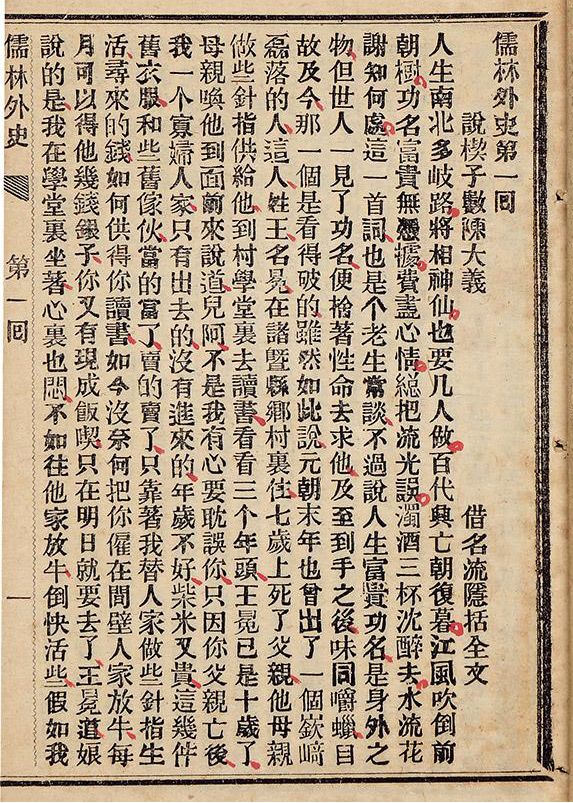 儒林外史第一回
說楔子敷陳大義　借名流隱括全文
人生南北多歧路將相神仙也要几人做百代興亡朝復暮江風吹倒前
朝樹功名富貴無憑據費盡心情總把流光誤濁酒三杯沈醉去水流花
謝知何處這一首詞也是个老生常談不過說人生富貴功名是身外之
物但世人一見了功名便捨著性命去求他及至到手之後味同嚼蠟自
故及今那一個是看得破的雖然如此說元朝末年也曾出了一個嶔崎
磊落的人這人姓王名冕在諸暨縣鄉村裏住七歲上死了父親他母親
做些針指供給他到村學堂裏去讀書看看三个年頭王冕已是十歲了
母親喚他到面前來說道兒阿不是我有心要耽誤你只因你父親亡後
我一个寡婦人家只有出去的沒有進來的年歲不好柴米又貴這幾件
舊衣服和些舊傢伙當的當了賣的賣了只靠著我替人家做些針指生
活尋來的錢如何供得你讀書如今沒奈何把你僱在間壁人家放牛每
月可以得他幾錢銀子你又有現成飯喫只在明日就要去了王冕道娘
說的是我在學堂裏坐著心裏也悶不如往他家放牛倒快活些假如我
儒林外史　第一回　一